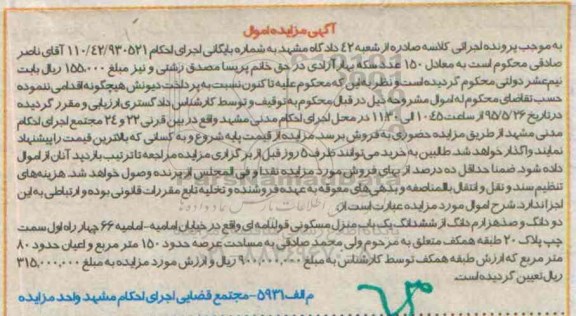 آگهی مزایده اموال
به موجب پرونده اجرائی کلاسه صادره از شعبه ۴۲ دادگاه مشهد به شماره بایگانی اجرای احکام ۱۱۰/۴۲/۹۳۰۵۲۱ آقای ناصر
صادقی محکوم است به معادل ۱۵۰ عدد سکه بهار آزادی در حق خانم پریسا مصدق رشتی و نیز مبلغ ۱۵۵،۰۰۰ ریال بابت
نیم عشر دولتی محکوم گردیده است و نظر به این که محکوم علیه تا کنون نسبت به پرداخت دیونش هیچگونه اقدامی ننموده
حسب تقاضای محکوم له اموال مشروحه ذیل در قبال محکوم به توقیف و توسط کارشناس دادگستری ارزیابی و مقرر گردیده
در تاریخ ۹۵/۵/۲۶ از ساعت ۱۰:۴۵ الی ۱۱:۳۰ در محل اجرای احکام مدنی مشهد واقع در بین قرنی ۲۲ و ۲۴ مجتمع اجرای احکام
مدنی مشهد از طریق مزایده حضوری به فروش برسد. مزایده از قیمت پایه شروع و به کسانی که بالاترین قیمت را پیشنهاد
نمایند واگذار خواهد شد. طالبین به خرید می توانند ظرف ۵ روز قبل از برگزاری مزایده مراجعه تا ترتیب بازدید آنان از اموال
داده شود. ضمنا حداقل ده درصد از بهای فروش مورد مزایده نقدا و فی المجلس از برنده وصول خواهد شد. هزینه های
تنظیم سند و نقل و انتقال بالمناصفه و بدهی های معوقه به عهده فروشنده و تخلیه تابع مقررات قانونی بوده و ارتباطی به این
اجرا ندارد. شرح اموال مورد مزایده عبارت است از:
دو دانگ و صدهزارم دانگ از ششدانگ یک باب منزل مسکونی قولنامه ای واقع در خیابان امامیه- امامیه ۶۶ چهار راه اول سمت
چپ پلاک ۲۰ طبقه همکف متعلق به مرحوم ولی محمد صادقی به مساحت عرصه حدود ۱۵۰ متر مربع و اعیان حدود ۸۰
متر مربع که ارزش طبقه همکف توسط کارشناس به مبلغ ۹۰۰،۰۰۰،۰۰۰ ریال و ارزش مورد مزایده به مبلغ ۳۱۵،۰۰۰،۰۰۰
ریال تعیین گردیده است.
م الف ۵۹۳۱- مجتمع قضایی اجرای احکام مشهد واحد مزایده